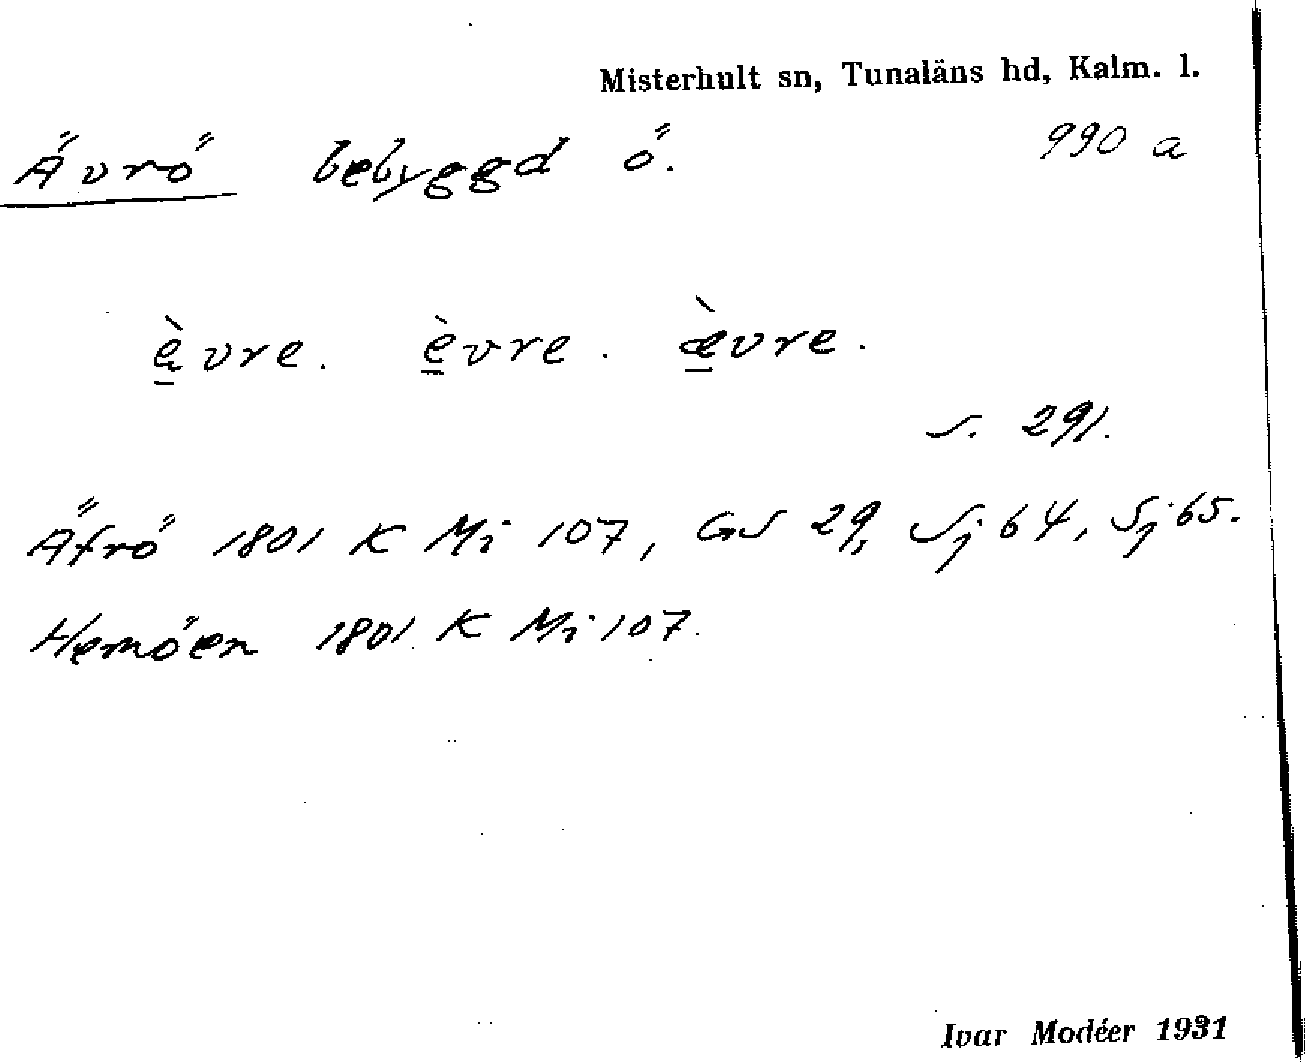 Misterhult sn, Tunaläns hd, Kalm. l.
Ävrö bebyggd ö. 990 a
è̱vre. è̱vre. æ̱̀vre.
s. 291.
Äfrö 1801 K Mi 107, GS 29, Sj 64, Sj 65.
Hemöen 1801 K Mi 107.
Ivar Modéer 1931